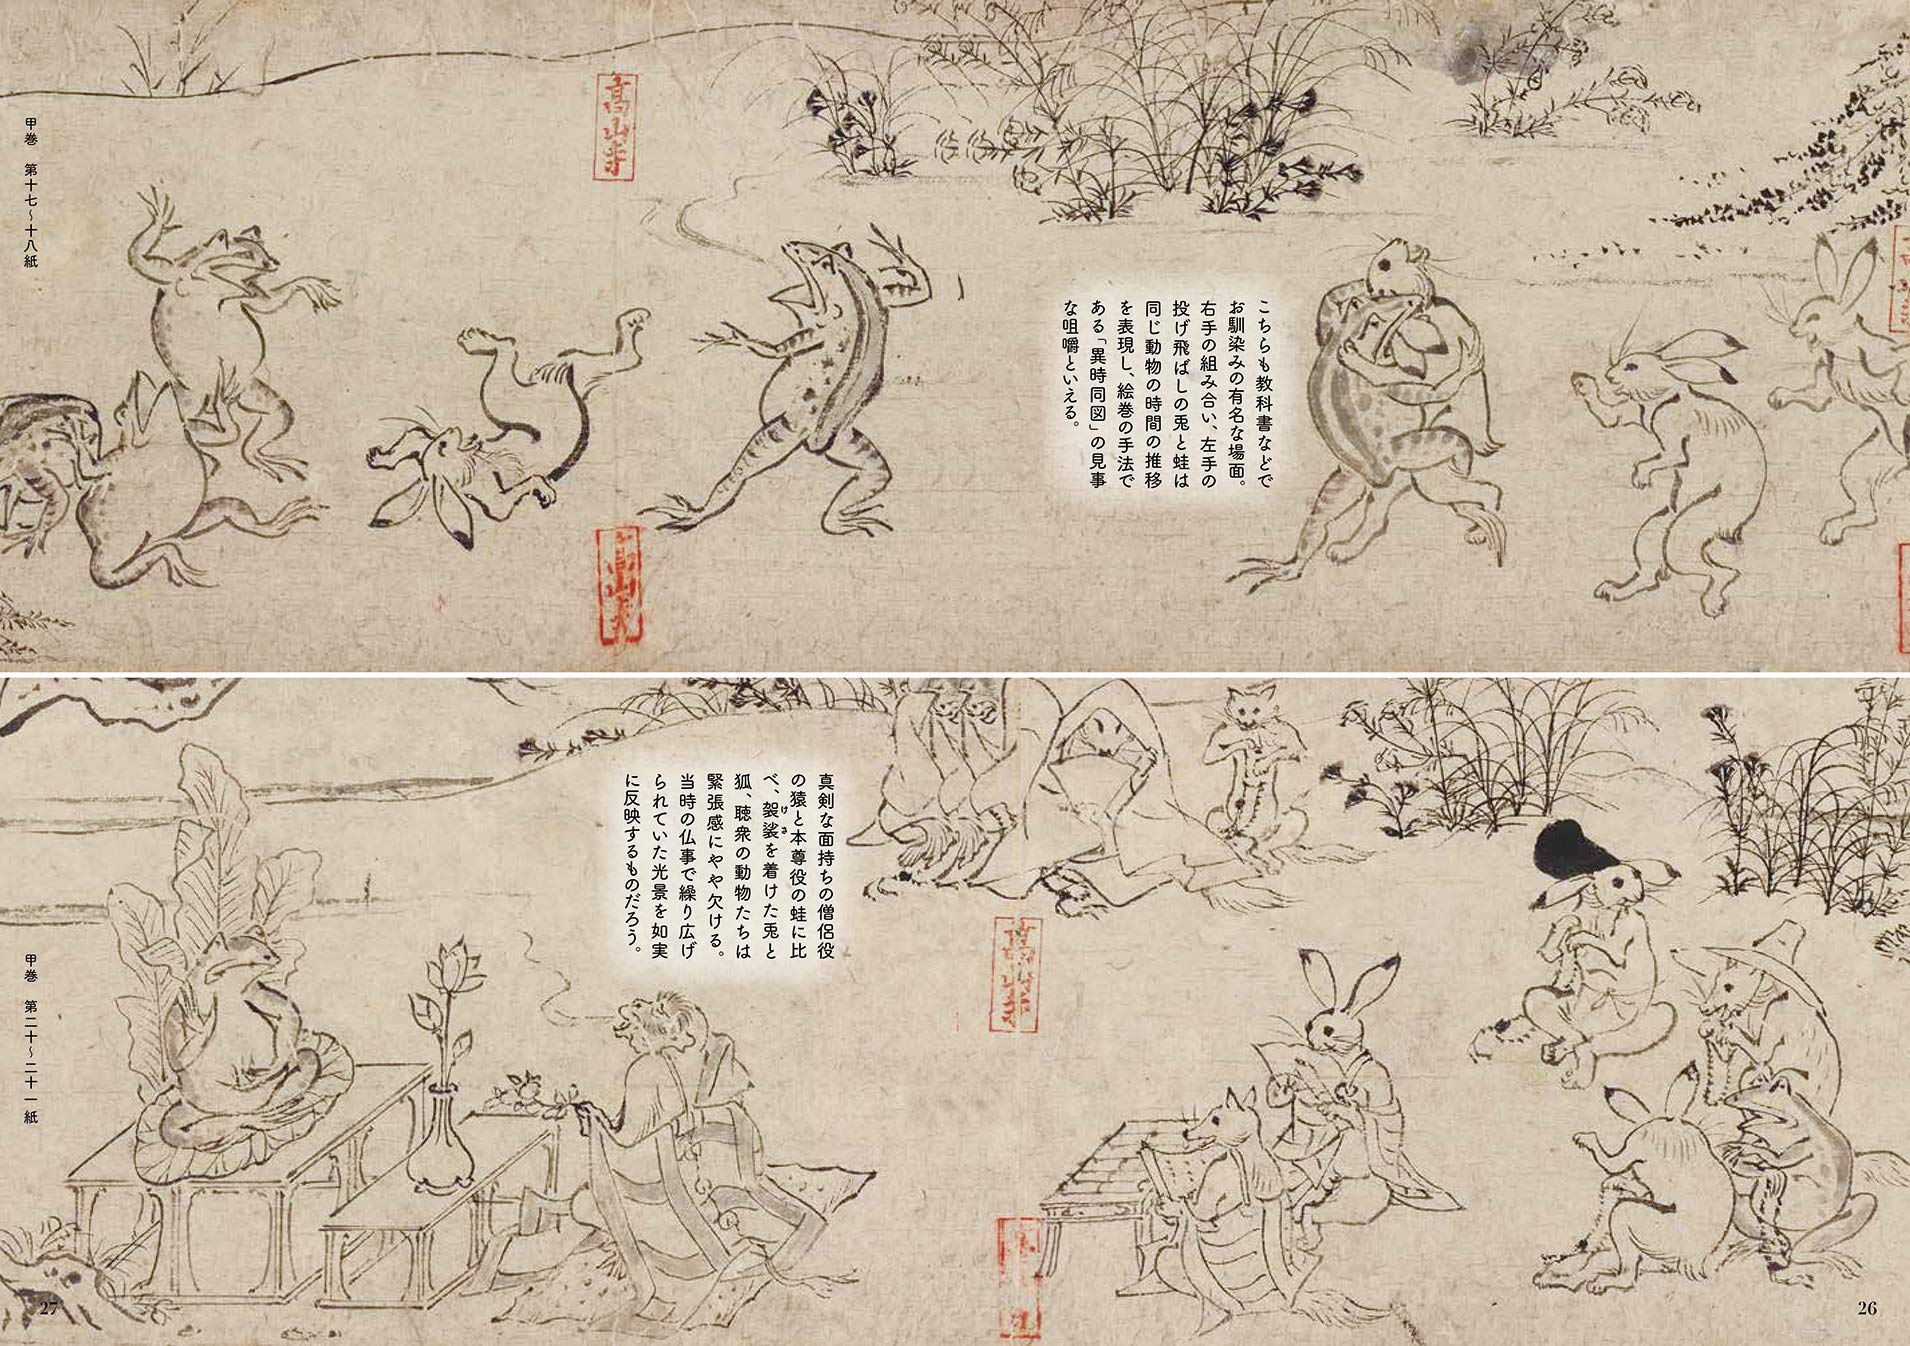 こちらも教科書などで
お馴染みの有名な場面。
右手の組み合い、左手の
投げ飛ばしの兎と蛙は
同じ動物の時間の推移
を表現し、絵巻の手法で
ある「異時同図」の見事
な咀嚼といえる。
高山寺
高山寺
甲巻 第十七〜十八紙
真剣な面持ちの僧侶役
の猿と本尊役の蛙に比
べ、袈裟を着けた兎と
けさ
狐、聴衆の動物たちは
緊張感にやや欠ける。
当時の仏事で繰り広げ
られていた光景を如実
に反映するものだろう。
高山寺
甲巻 第二十〜二十一紙
26
27